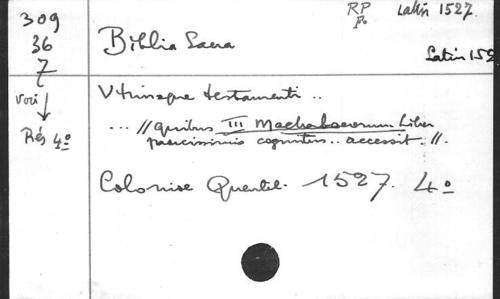 309
36
7
Voir
Rés 4º
RP
Latin 1527.
Biblia Sacra
Latin 152
Vtriusque testamenti ..
... // quibus III Machabaeorum liber
paucissimis cognitus .. accessit. //.
Coloniae Quentel. 1527. 4º